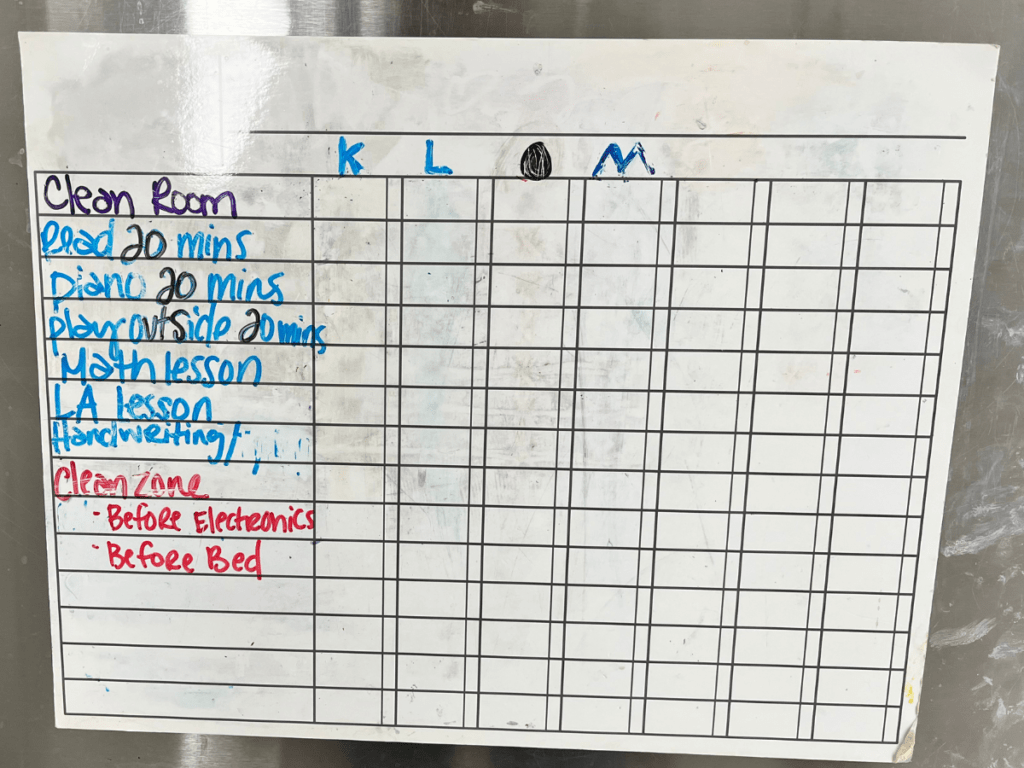 K L O M
Clean Room
Read 20 mins
piano 20 mins
play outside 20 mins
Math lesson
LA lesson
Handwriting/
Clean zone
- Before Electronics
- Before Bed